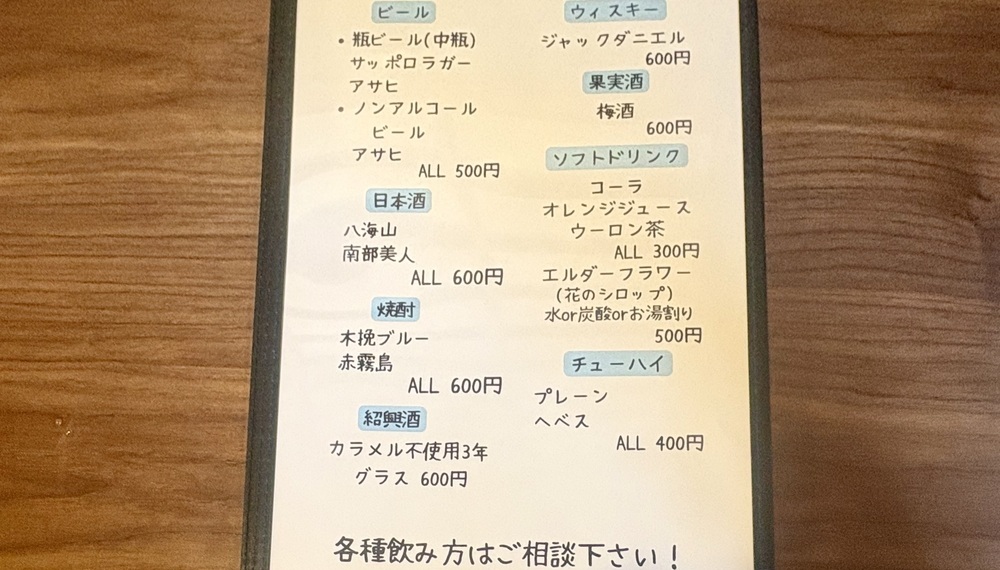 ビール
・瓶ビール(中瓶)
サッポロラガー
アサヒ
・ノンアルコール
ビール
アサヒ
ALL 500円
日本酒
八海山
南部美人
ALL 600円
焼酎
木挽ブルー
赤霧島
ALL 600円
紹興酒
カラメル不使用3年
グラス 600円
ウィスキー
ジャックダニエル
600円
果実酒
梅酒
600円
ソフトドリンク
コーラ
オレンジジュース
ウーロン茶
ALL 300円
エルダーフラワー
(花のシロップ)
水or炭酸orお湯割り
500円
チューハイ
プレーン
ヘベス
ALL 400円
各種飲み方はご相談下さい!